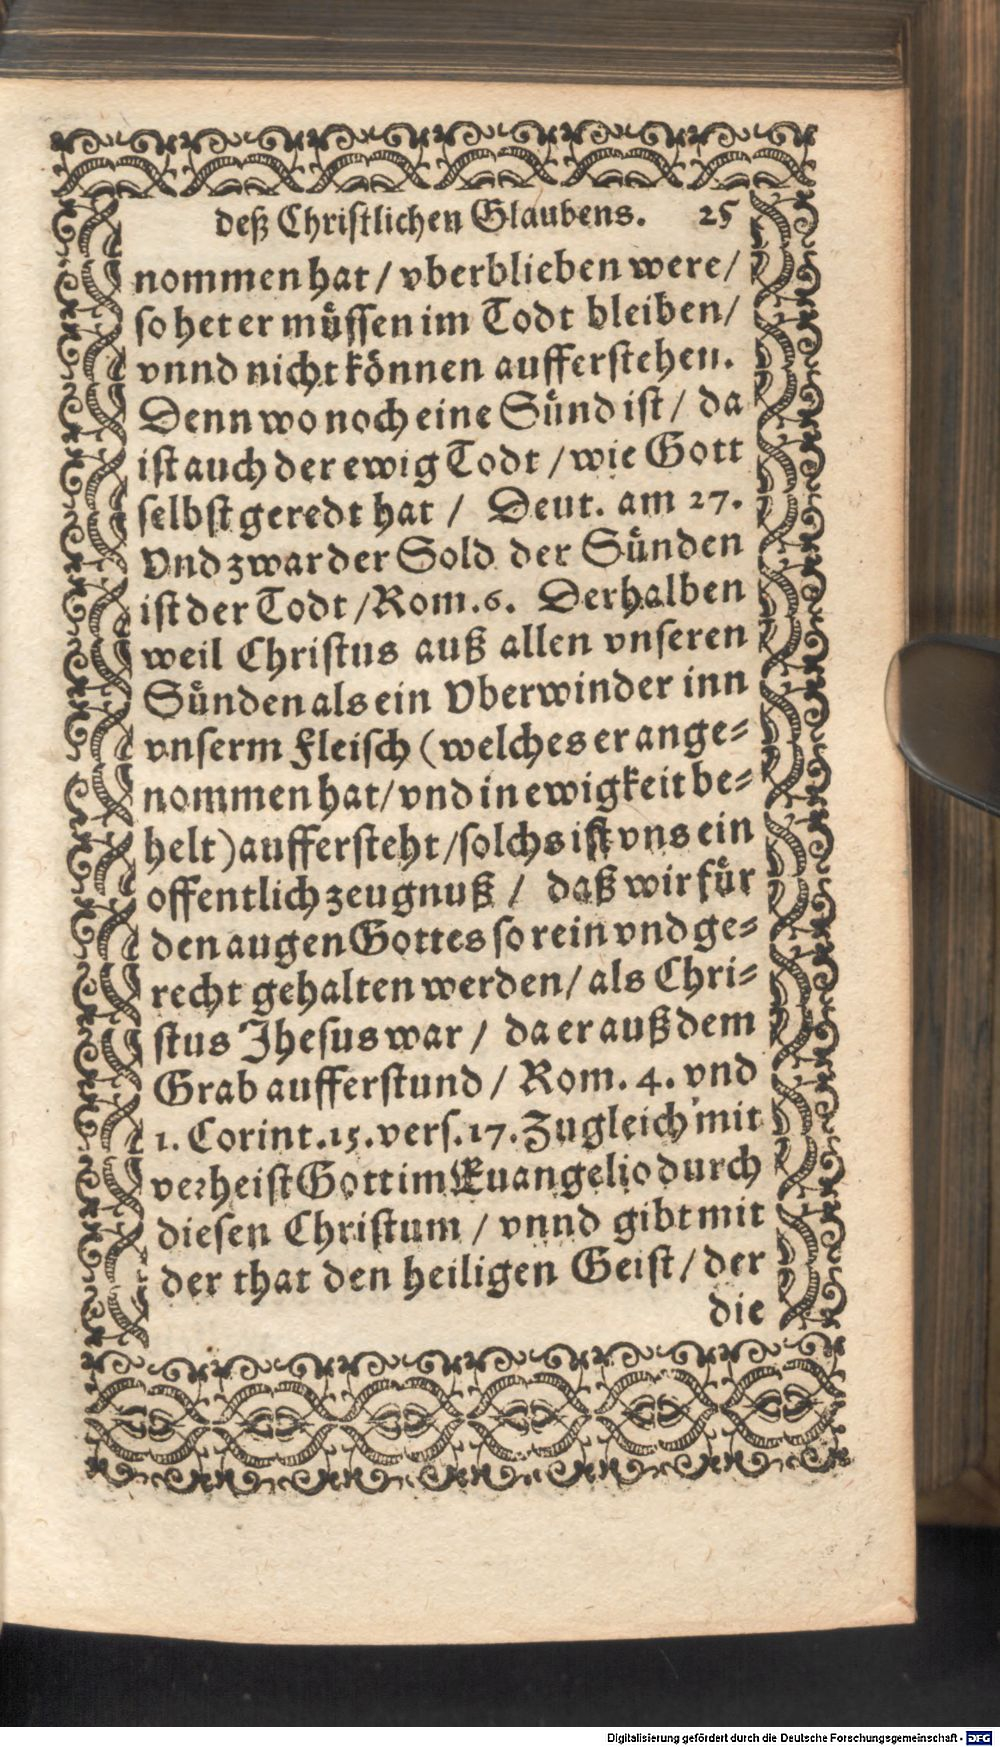 deß Christlichen Glaubens. 25
nommen hat / vberblieben were /
so het er müssen im Todt bleiben /
vnnd nicht können aufferstehen.
Denn wo noch eine Sünd ist / da
ist auch der ewig Todt / wie Gott
selbst geredt hat / Deut. am 27.
Vnd zwar der Sold der Sünden
ist der Todt / Rom. 6. Derhalben
weil Christus auß allen vnseren
Sünden als ein Vberwinder inn
vnserm Fleisch (welches er ange-
nommen hat / vnd in ewigkeit be-
helt) aufferstehet / solchs ist vns ein
offentlich zeugnuß / daß wir für
den augen Gottes so rein vnd ge-
recht gehalten werden / als Chri-
stus Jhesus war / da er auß dem
Grab aufferstund / Rom. 4. vnd
1. Corint. 15. vers. 17. Zugleich mit
verheist Gott im Euangelio durch
diesen Christum / vnnd gibt mit
der that den heiligen Geist / der
die
Digitalisierung gefördert durch die Deutsche Forschungsgemeinschaft - DFG